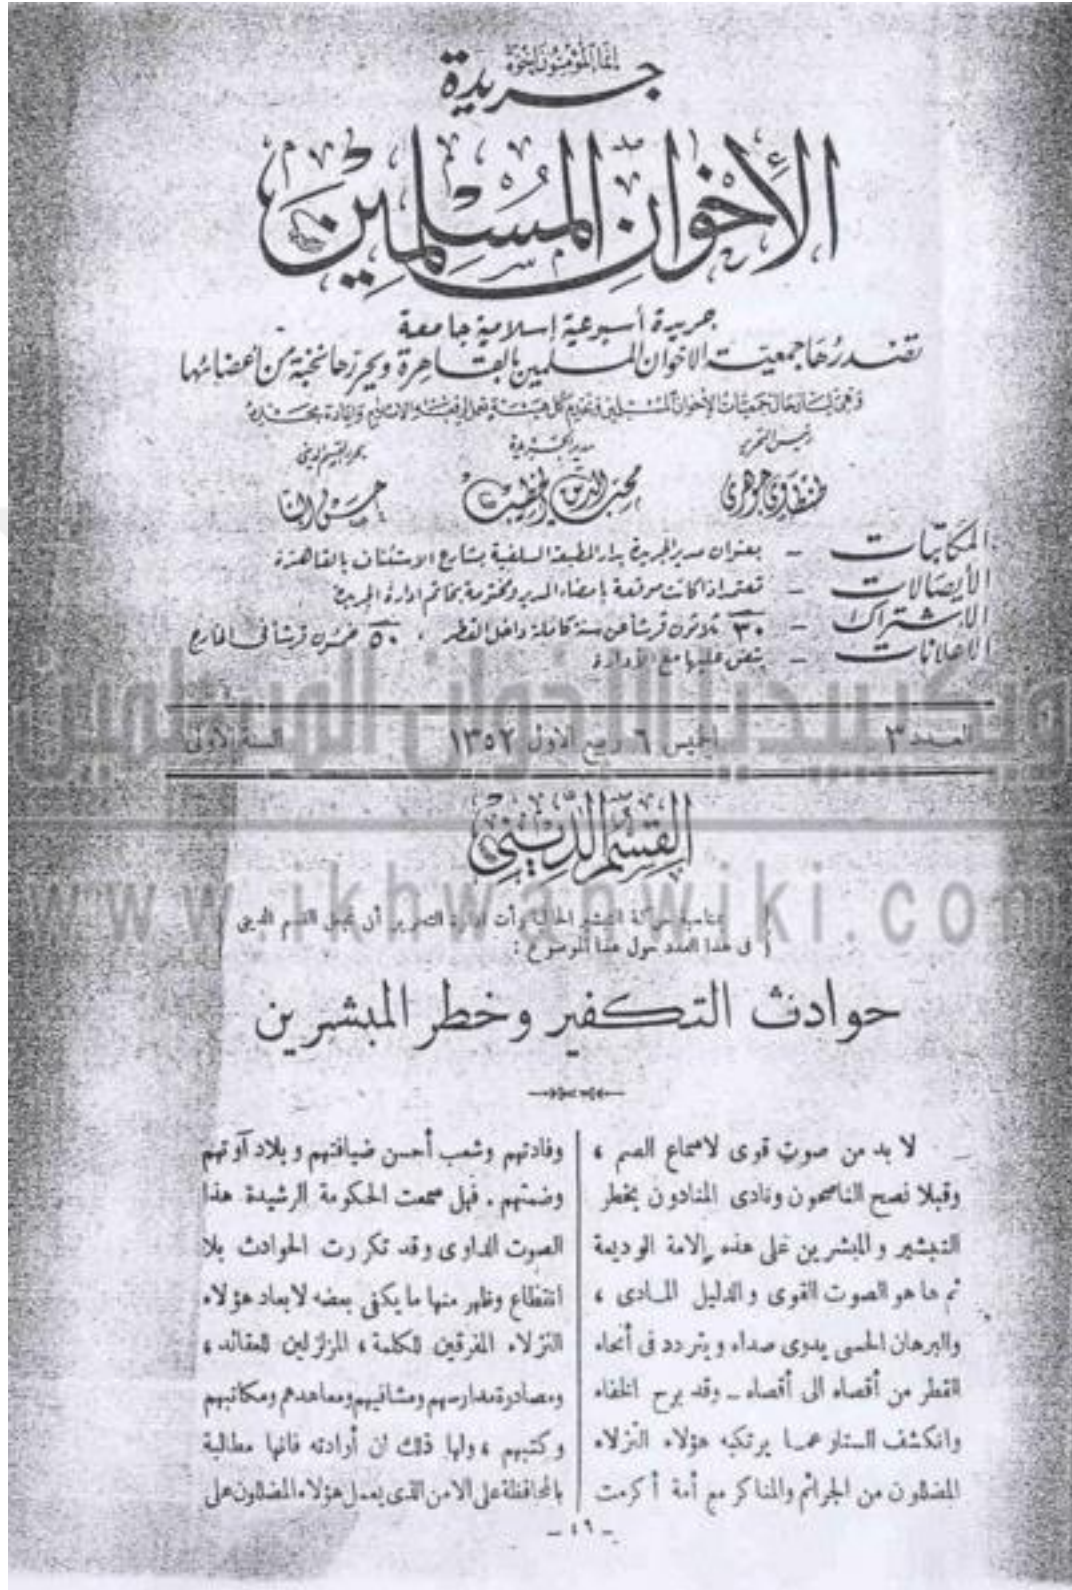 إنما المؤمنون إخوة
جريدة
الإخوان المسلمين
جريدة أسبوعية إسلامية جامعة
تصدرها جمعية الاخوان المسلمين بالقاهرة ويحررها نخبة من أعضائها
وهي لسان حال جمعيات الإخوان المسلمين
رئيس التحرير
مدير الجريدة
محرر القسم الديني
طنطاوي جوهري
محب الدين الخطيب
حسن البنا
المكاتبات – بعنوان مدير الجريدة بدار المطبعة السلفية بشارع الاستئناف بالقاهرة
الأيصالات – تعتمد اذا كانت موقعة بامضاء المدير ومختومة بخاتم ادارة الجريدة
الاشتراك – ٣٠ ثلاثون قرشا عن سنة كاملة داخل القطر ، ٥٠ خمسون قرشا في الخارج
الاعلانات – يتفق عليها مع الادارة
ويكيبيديا الإخوان المسلمين
العدد ٣
الخميس ٦ ربيع الاول ١٣٥٢
السنة الأولى
القسم الديني
www.ikhwanwiki.com
بمناسبة حركة التبشير الحالية رأت ادارة التحرير أن تجعل القسم الديني
فى هذا العدد حول هذا الموضوع :
حوادث التكفير وخطر المبشرين
لا بد من صوت قوى لاسماع الصم ،
وقبلا نصح الناصحون ونادى المنادون بخطر
التبشير والمبشرين على هذه الامة الوديعة
ثم ها هو الصوت القوى والدليل المادى ،
والبرهان الحسى يدوى صداه ويتردد فى أنحاء
القطر من أقصاه الى أقصاه ــ وقد برح الخفاء
وانكشف الستار عما يرتكبه هؤلاء النزلاء
المضللون من الجرائم والمناكر مع أمة أكرمت
وفادتهم وشعب أحسن ضيافتهم وبلاد آوتهم
وضمتهم . فهل سمعت الحكومة الرشيدة هذا
الصوت الداوى وقد تكررت الحوادث بلا
انقطاع وظهر منها ما يكفى بعضه لابعاد هؤلاء
النزلاء المفرقين للكلمة ، المزلزلين للعقائد ،
ومصادرة مدارسهم ومشافيهم ومعاهدهم ومكاتبهم
وكتبهم ، ولها ذلك ان أرادته فانها مطالبة
بالمحافظة على الامن الذى يعمل هؤلاء المضللون على
– ٤٩ –